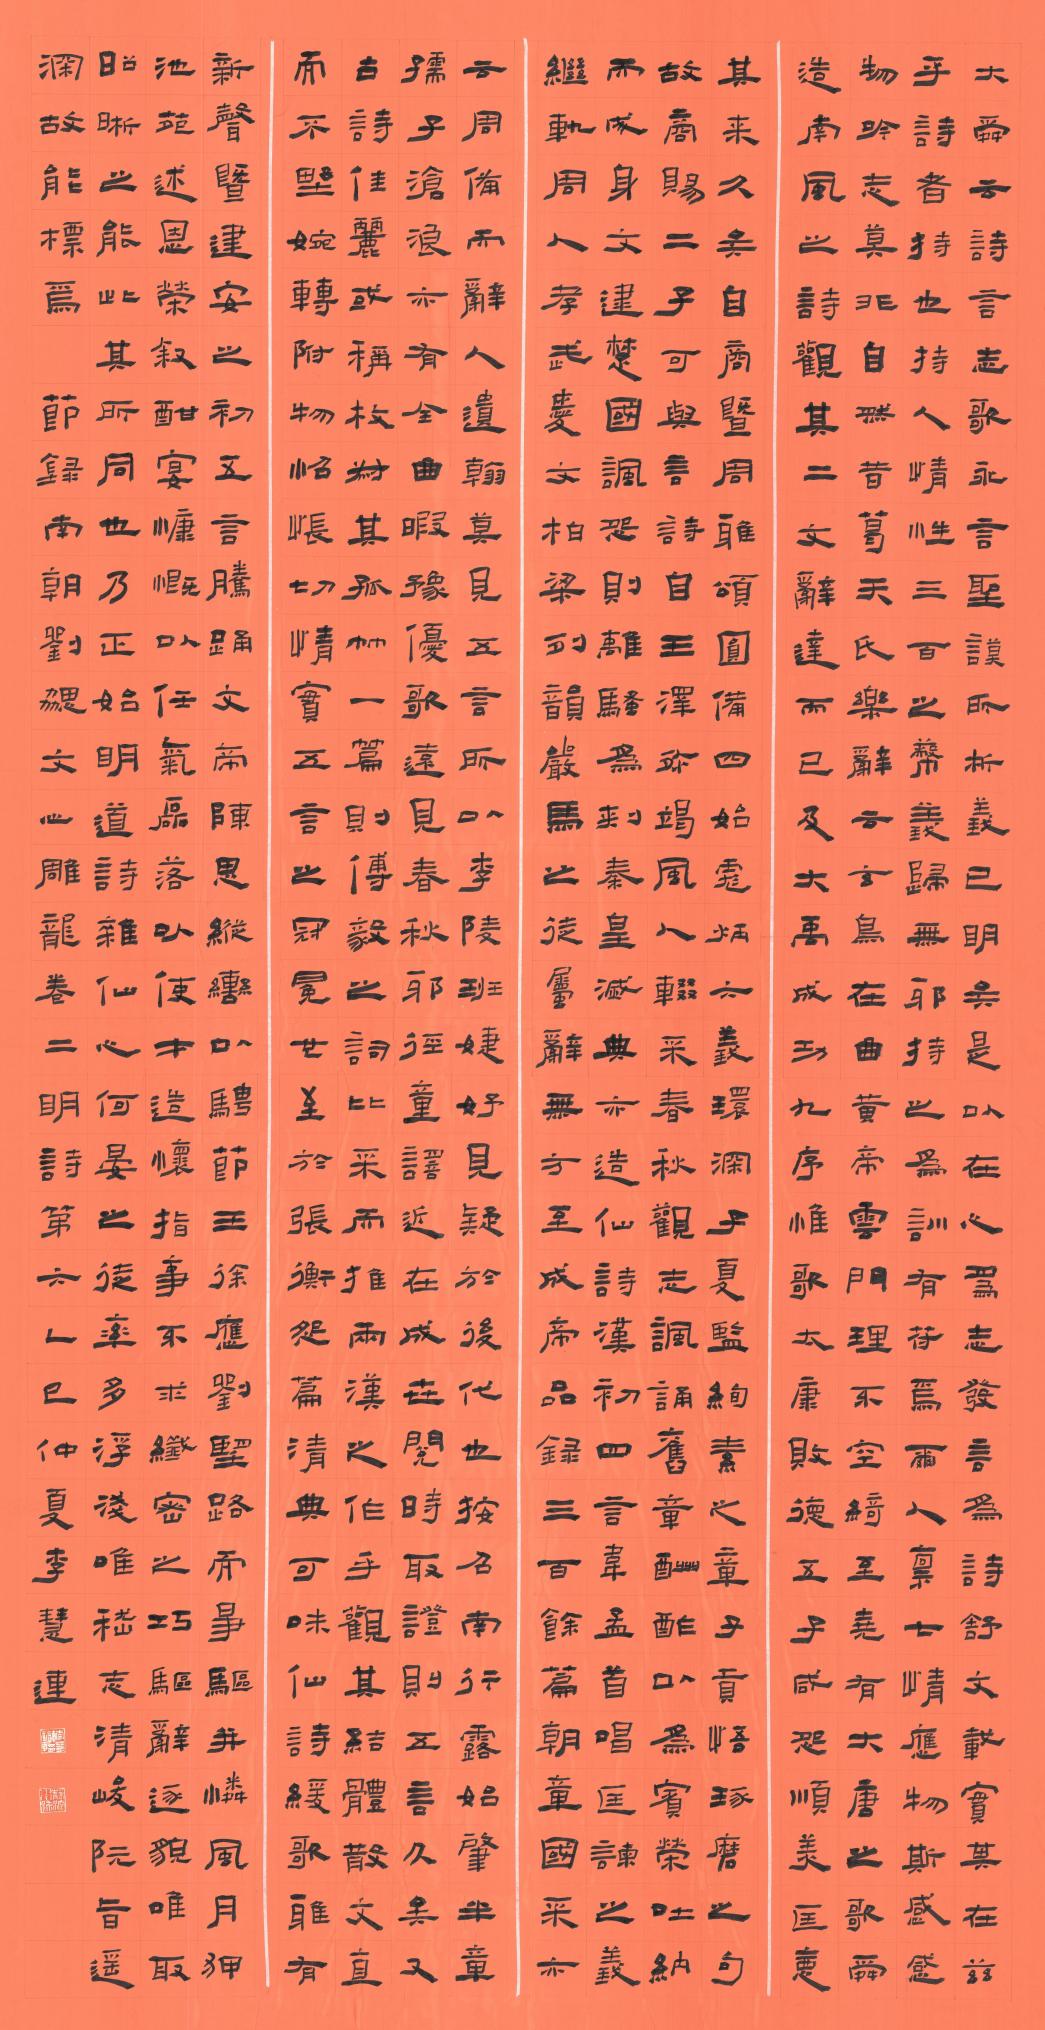 大舜云詩言志歌永言聖謨所析義已明矣是以在心爲志發言爲詩舒文載實其在兹
乎詩者持也持人情性三百之幣義歸無邪持之爲訓有苻焉爾人禀七情應物斯感感
物吟志莫非自然昔葛天氏樂辭云玄鳥在曲黄帝雲門理不空綺至堯有大唐之歌舜
造南風之詩觀其二文辭達而已及大禹成功九序惟歌太康敗德五子咸怨順美匡惡
其来久矣自商暨周雅頌圓備四始彪炳六義環深子夏監絢素之章子貢悟琢磨之句
故商賜二子可與言詩自王澤殄竭風人輟采春秋觀志諷誦舊章酬酢以爲賓榮吐納
而成身文逮楚國諷怨則離騷爲刺秦皇滅典亦造仙詩漢初四言韋孟首唱匡諫之義
繼軌周人孝武愛文柏梁列韻嚴馬之徒屬辭無方至成帝品録三百餘篇朝章國采亦
云周備而辭人遺翰莫見五言所以李陵班婕妤見疑於後代也按召南行露始肇半章
孺子滄浪亦有全曲暇豫優歌遠見春秋邪徑童謡近在成世閲時取證則五言久矣又
古詩佳麗或稱枚叔其孤竹一篇則傅毅之詞比采而推兩漢之作乎觀其結體散文直
而不野婉轉附物怊悵切情實五言之冠冕也至於張衡怨篇清典可味仙詩緩歌雅有
新聲暨建安之初五言騰踊文帝陳思縱轡以騁節王徐應劉望路而爭驅并憐風月狎
池苑述恩榮叙酣宴慷慨以任氣磊落以使才造懷指事不求纖密之巧驅辭逐貌唯取
昭晰之能此其所同也乃正始明道詩雜仙心何晏之徒率多浮淺唯嵇志清峻阮旨遥
深故能標焉 節録南朝劉勰文心雕龍卷二明詩第六乙巳仲夏李慧連